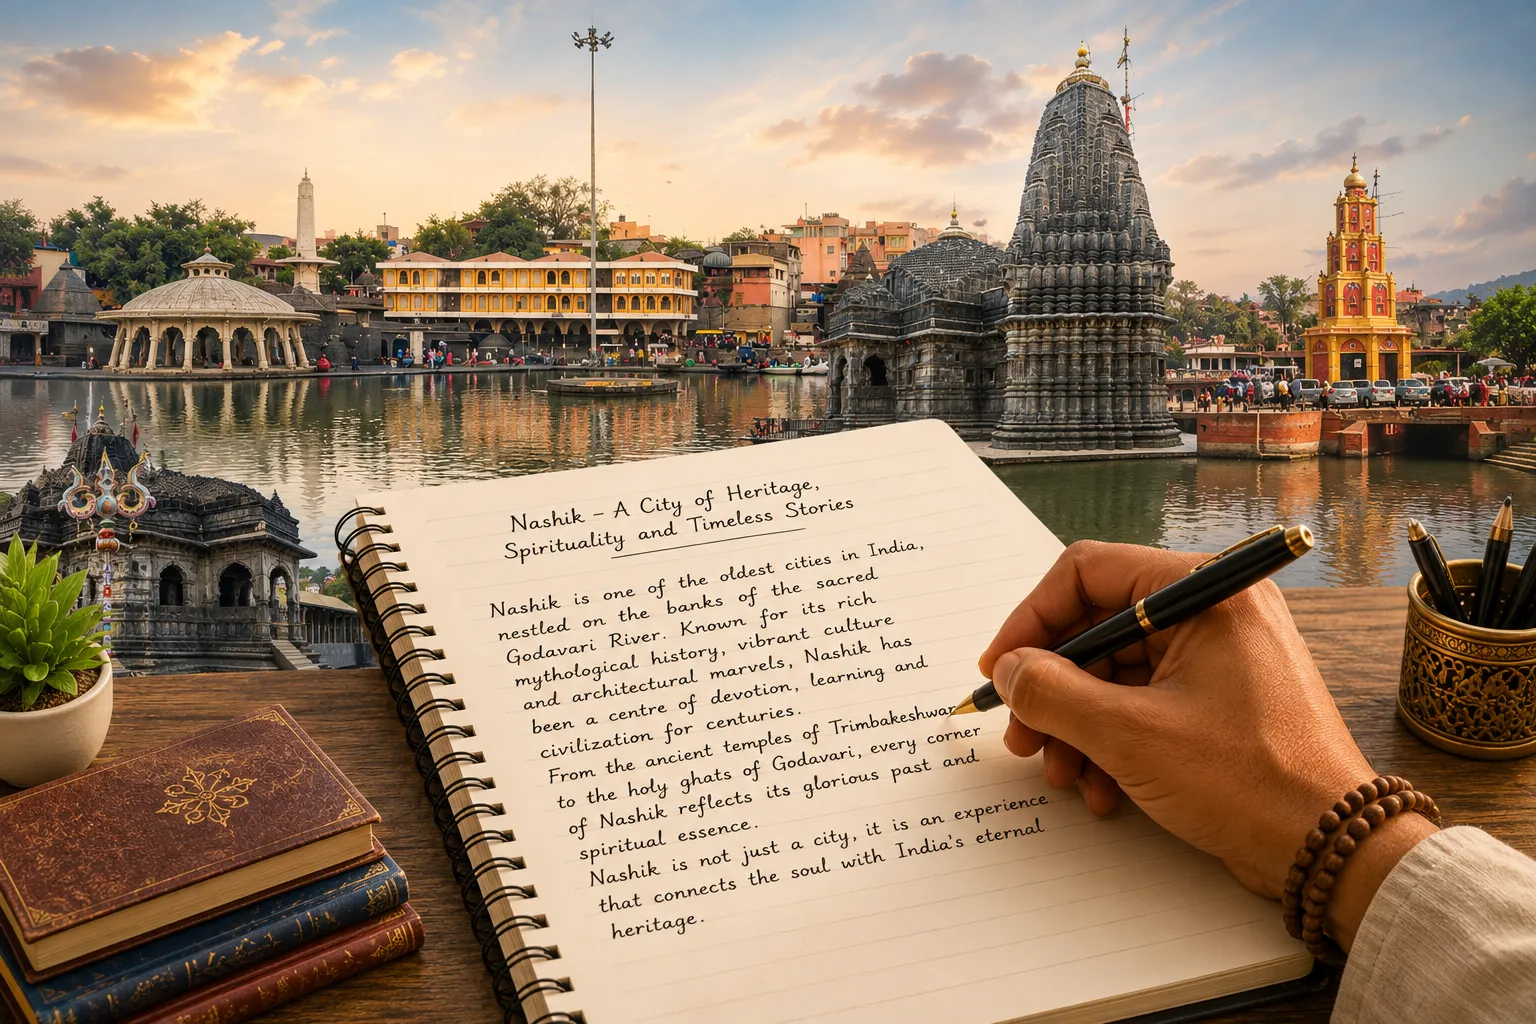 Nashik – A City of Heritage,
Spirituality and Timeless Stories
Nashik is one of the oldest cities in India,
nestled on the banks of the sacred
Godavari River. Known for its rich
mythological history, vibrant culture
and architectural marvels, Nashik has
been a centre of devotion, learning and
civilization for centuries.
From the ancient temples of Trimbakeshwar
to the holy ghats of Godavari, every corner
of Nashik reflects its glorious past and
spiritual essence.
Nashik is not just a city, it is an experience
that connects the soul with India's eternal
heritage.